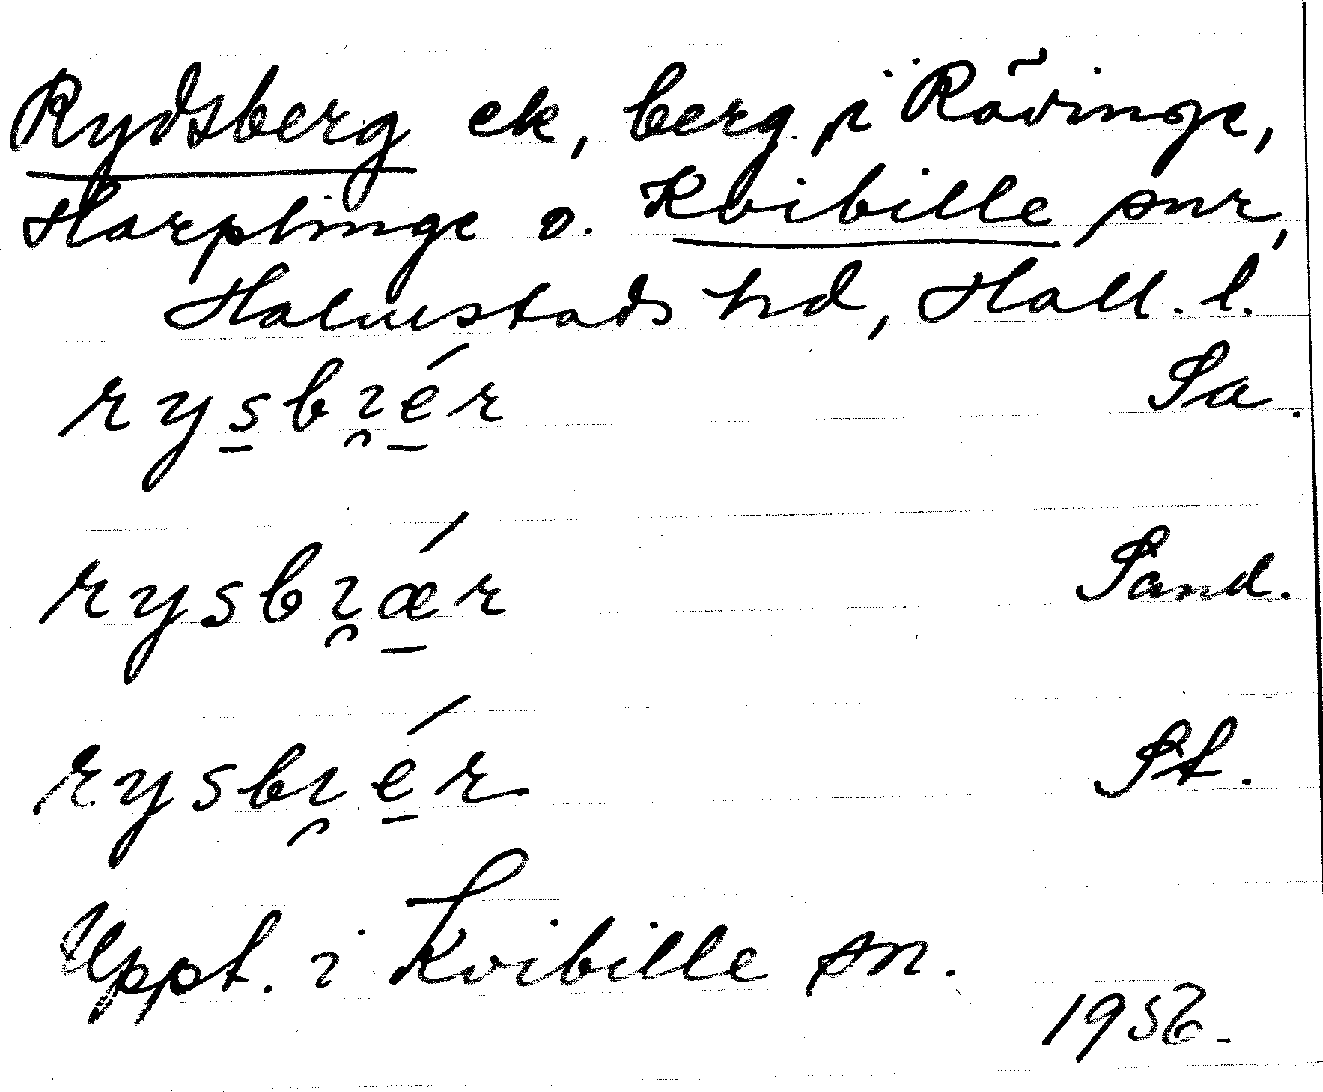 Rydsberg ek, berg, i Rävinge,
Harplinge o. Kvibille snr,
Halmstads hd, Hall. l.
rysbɿ̯ér Sa.
rysbɿ̯ǽr Sand.
rysbɿ̯ér St.
Uppt. i Kvibille sn.
1956.